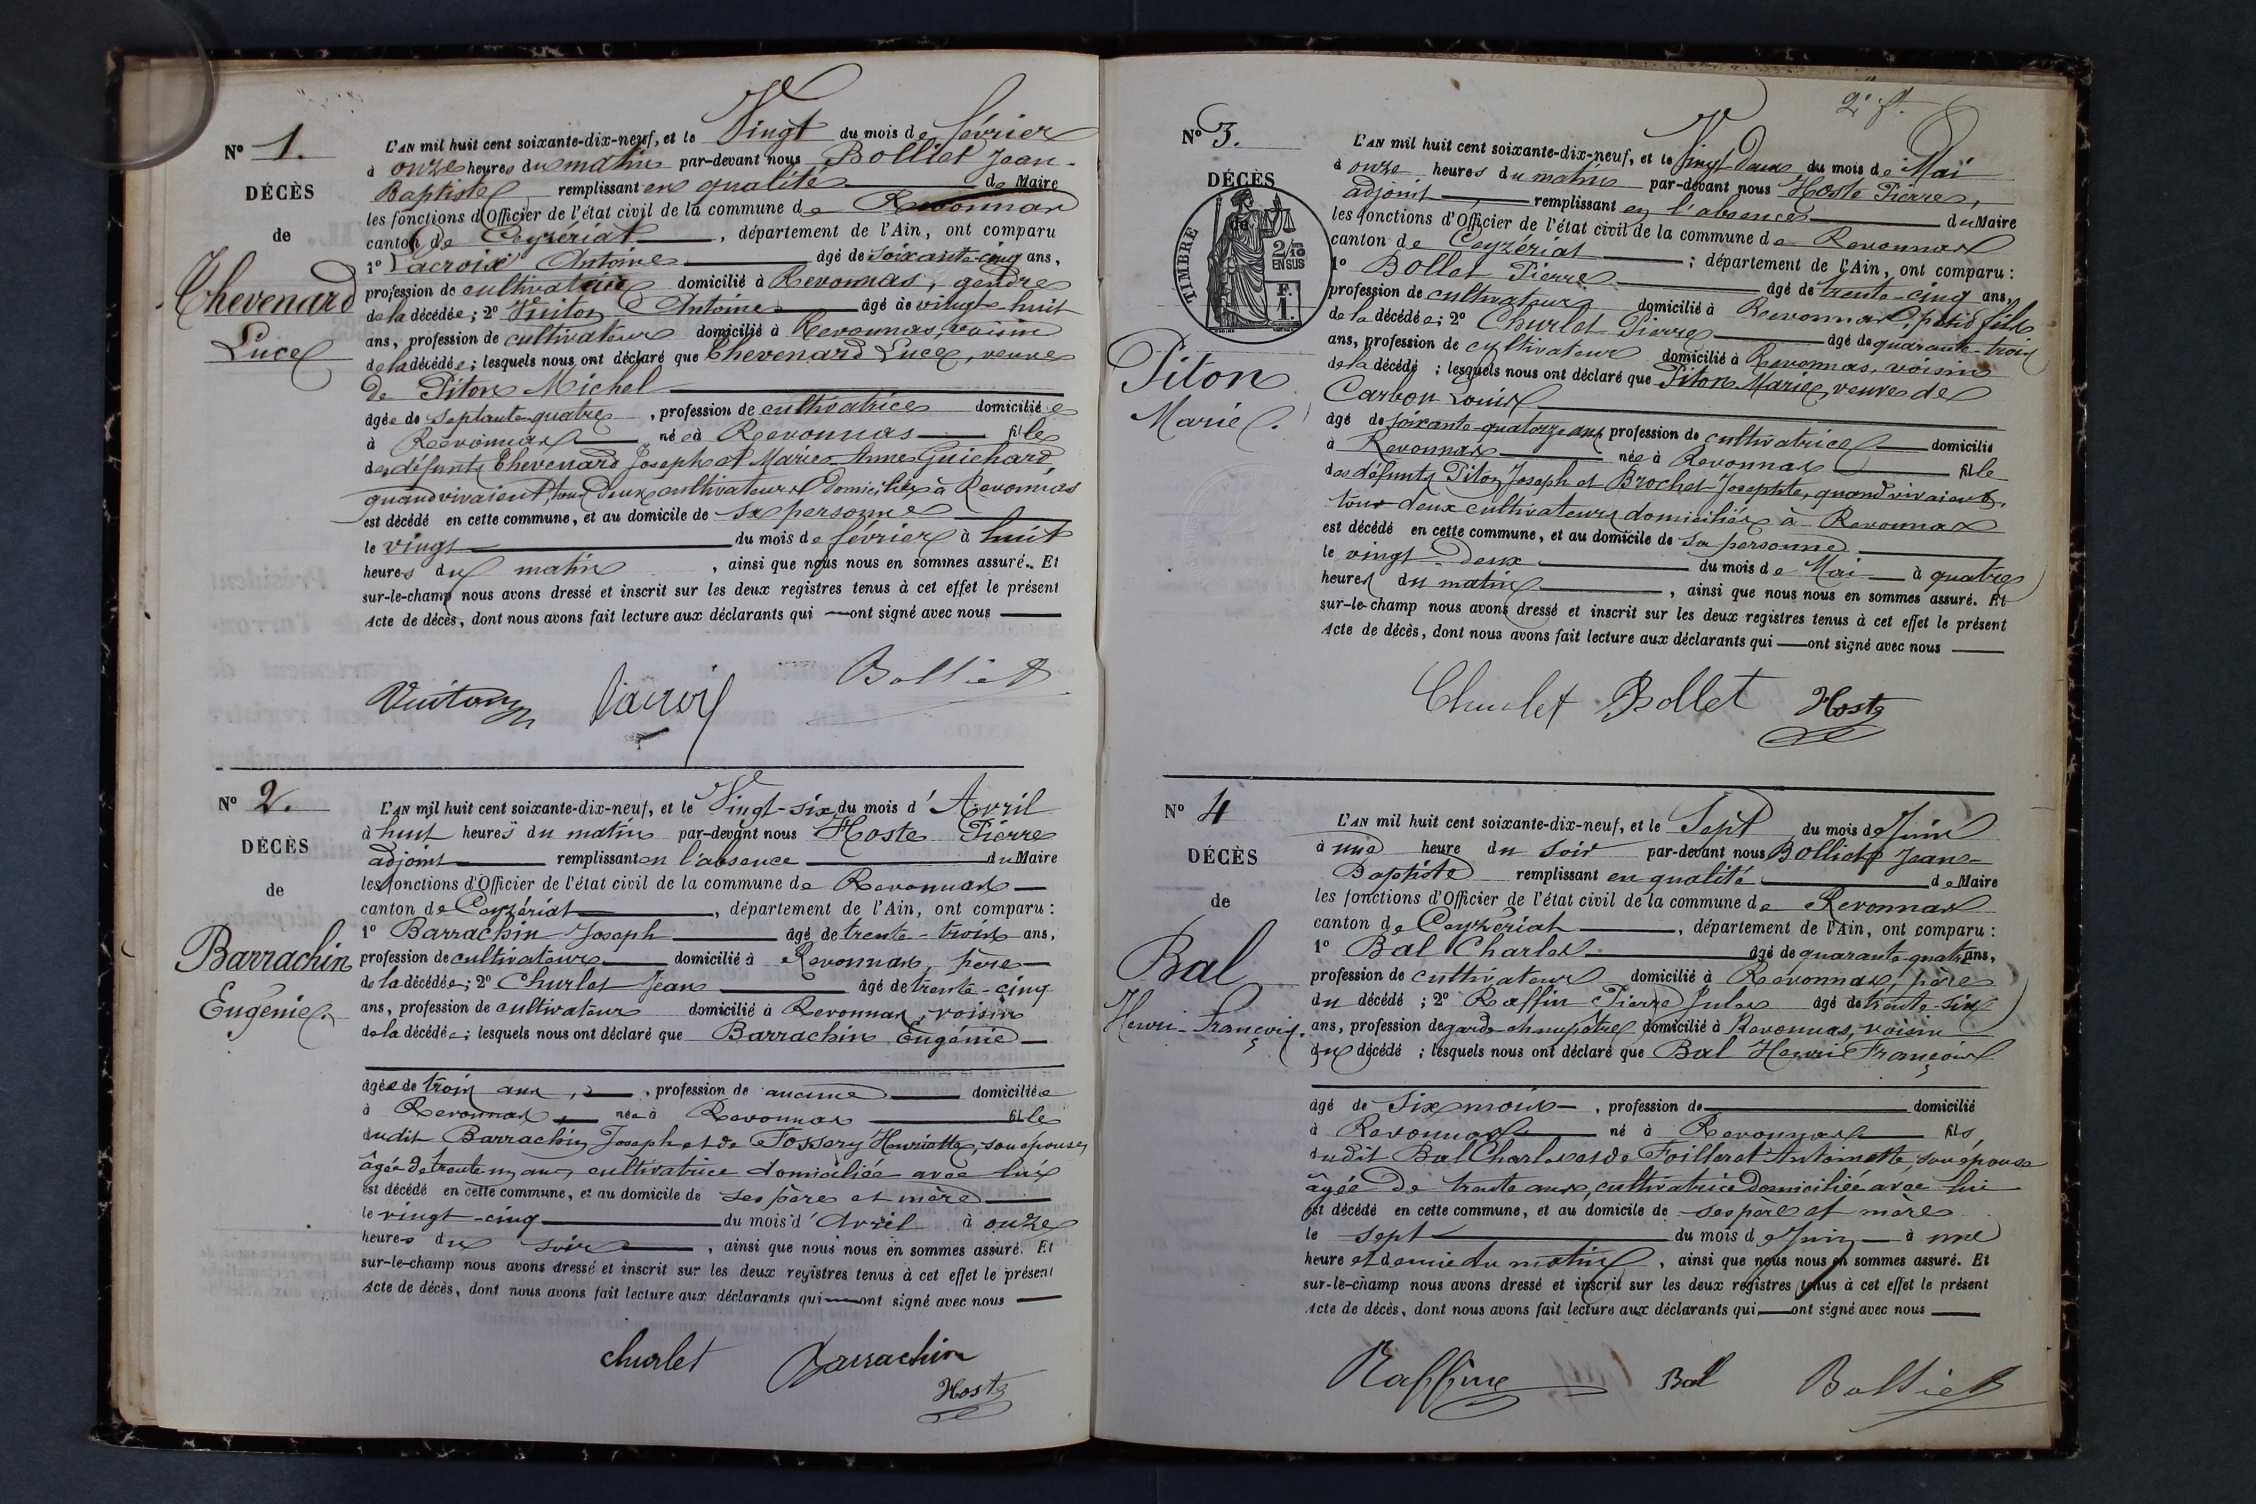 N° 1.
DÉCÈS
de
Chevenard
Luce
L'AN mil huit cent soixante-dix-neuf, et le Vingt du mois de février
à onze heures du matin par-devant nous Bolliet Jean-
Baptiste remplissant en qualité de Maire
les fonctions d'Officier de l'état civil de la commune de Revonnas
canton de Ceyzériat, département de l'Ain, ont comparu
1° Lacroix Antoine âgé de soixante-cinq ans,
profession de cultivateur domicilié à Revonnas, gendre
de la décédée; 2° Vuiton Antoine âgé de vingt-huit
ans, profession de cultivateur domicilié à Revonnas, voisin
de la décédée; lesquels nous ont déclaré que Chevenard Luce, veuve
de Piton Michel
âgée de septante-quatre, profession de cultivatrice domiciliée
à Revonnas née à Revonnas fille
des défunts Chevenard Joseph et Marie-Anne Guichard,
quand vivaient, tous deux cultivateurs domiciliés à Revonnas
est décédé en cette commune, et au domicile de sa personne
le vingt du mois de février à huit
heures du matin, ainsi que nous nous en sommes assuré. Et
sur-le-champ nous avons dressé et inscrit sur les deux registres tenus à cet effet le présent
Acte de décès, dont nous avons fait lecture aux déclarants qui ont signé avec nous
Vuiton Lacroix Bolliet
N° 2.
DÉCÈS
de
Barrachin
Eugénie
L'AN mil huit cent soixante-dix-neuf, et le Vingt-six du mois d'Avril
à huit heures du matin par-devant nous Hoste Pierre
adjoint remplissant en l'absence du Maire
les fonctions d'Officier de l'état civil de la commune de Revonnas
canton de Ceyzériat, département de l'Ain, ont comparu:
1° Barrachin Joseph âgé de trente-trois ans,
profession de cultivateur domicilié à Revonnas, père
de la décédée; 2° Churlet Jean âgé de trente-cinq
ans, profession de cultivateur domicilié à Revonnas, voisin
de la décédée; lesquels nous ont déclaré que Barrachin Eugénie
âgée de trois ans, profession de aucune domiciliée
à Revonnas, née à Revonnas fille
dudit Barrachin Joseph et de Fossery Henriette, son épouse,
âgée de trente un ans, cultivatrice domiciliée avec lui
est décédé en cette commune, et au domicile de ses père et mère
le vingt-cinq du mois d'Avril à onze
heures du soir, ainsi que nous nous en sommes assuré. Et
sur-le-champ nous avons dressé et inscrit sur les deux registres tenus à cet effet le présent
Acte de décès, dont nous avons fait lecture aux déclarants qui ont signé avec nous
churlet Barrachin
Hoste
2e ft.
N° 3.
DÉCÈS
de
TIMBRE
2/10
EN SUS
F.
1.
Piton
Marie
L'AN mil huit cent soixante-dix-neuf, et le Vingt Deux du mois de Mai
à onze heures du matin par-devant nous Hoste Pierre,
adjoint, remplissant en l'absence du Maire
les fonctions d'Officier de l'état civil de la commune de Revonnas
canton de Ceyzériat; département de l'Ain, ont comparu:
1° Bollet Pierre âgé de trente-cinq ans,
profession de cultivateur domicilié à Revonnas, petit fils
de la décédée; 2° Churlet Pierre âgé de quarante-trois
ans, profession de cultivateur domicilié à Revonnas, voisin
de la décédé; lesquels nous ont déclaré que Piton Marie, veuve de
Carbon Louis
âgé de soixante-quatorze ans profession de cultivatrice domicilié
à Revonnas née à Revonnas fille
des défunts Piton Joseph et Brochet Josephte, quand vivaient,
tous deux cultivateurs domiciliés à Revonnas
est décédé en cette commune, et au domicile de sa personne
le vingt-deux du mois de Mai à quatre
heures du matin, ainsi que nous nous en sommes assuré. Et
sur-le-champ nous avons dressé et inscrit sur les deux registres tenus à cet effet le présent
Acte de décès, dont nous avons fait lecture aux déclarants qui ont signé avec nous
Churlet Bollet Hoste
N° 4
DÉCÈS
de
Bal
Henri-François.
L'AN mil huit cent soixante-dix-neuf, et le Sept du mois de Juin
à une heure du soir par-devant nous Bolliet Jean-
Baptiste remplissant en qualité de Maire
les fonctions d'Officier de l'état civil de la commune de Revonnas
canton de Ceyzériat, département de l'Ain, ont comparu:
1° Bal Charles âgé de quarante-quatre ans,
profession de cultivateur domicilié à Revonnas, père
du décédé; 2° Raffin Pierre Jules âgé de trente-six
ans, profession de garde champêtre domicilié à Revonnas, voisin
du décédé; lesquels nous ont déclaré que Bal Henri François
âgé de six mois, profession de domicilié
à Revonnas né à Revonnas fils
dudit Bal Charles et de Foilleret Antoinette, son épouse
âgée de trente ans, cultivatrice domiciliée avec lui
est décédé en cette commune, et au domicile de ses père et mère
le sept du mois de Juin à une
heure et demie du matin, ainsi que nous nous en sommes assuré. Et
sur-le-champ nous avons dressé et inscrit sur les deux registres tenus à cet effet le présent
Acte de décès, dont nous avons fait lecture aux déclarants qui ont signé avec nous
Raffin Bal Bolliet